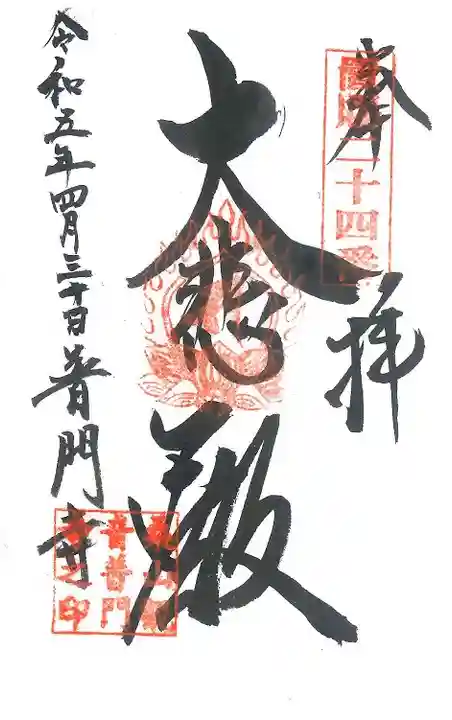 奉拝
霊場二十四番
大悲殿
令和五年四月三十日普門寺
音普門
寺之印